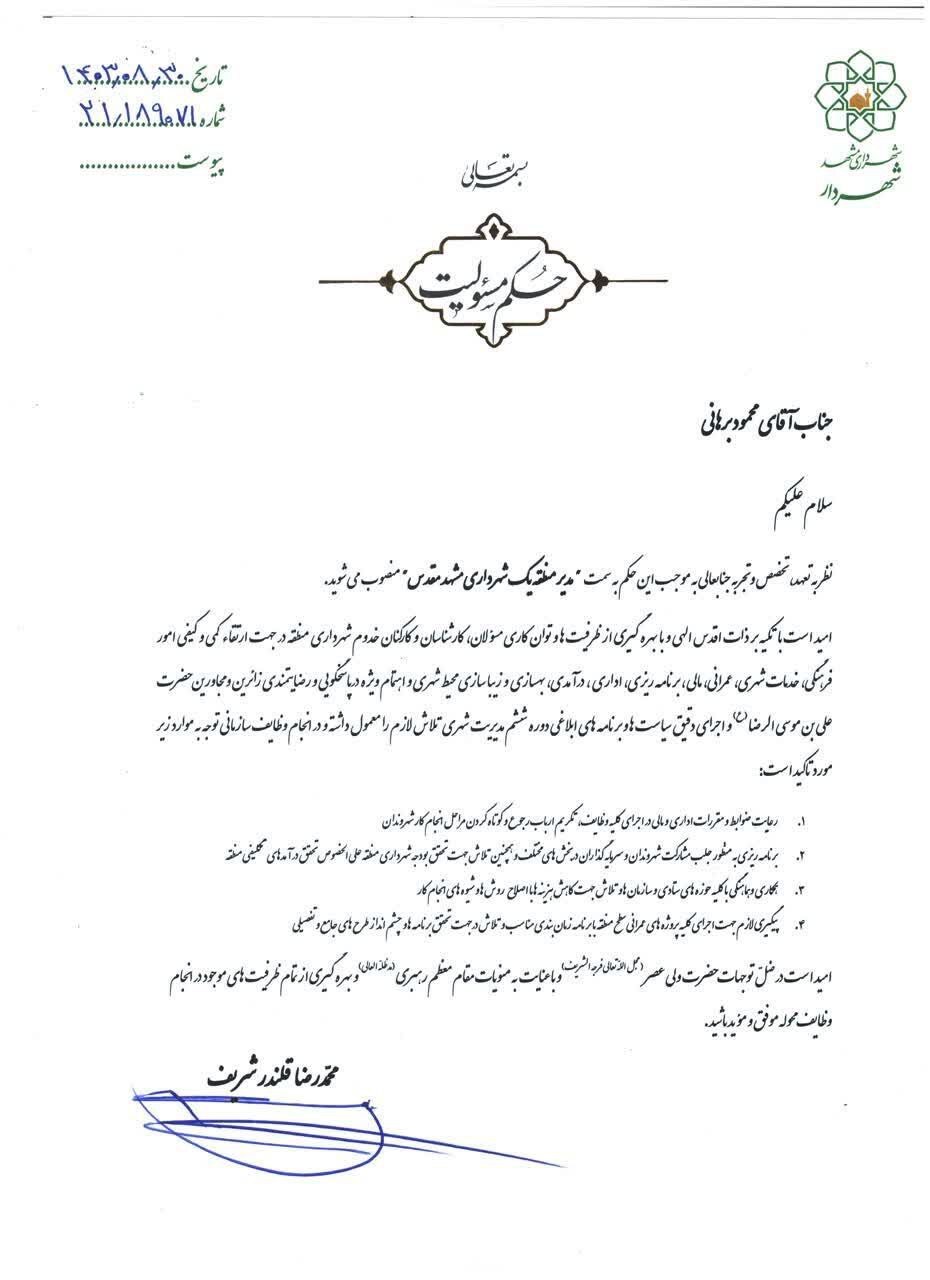 تاریخ ۱۴۰۳,۰۸,۳۰
شماره ۲۱/۱۸۹۰۷۱
پیوست .................
شهرداری مشهد
شهردار
بسمه تعالی
حُکم مسئولیت
جناب آقای محمود برهانی
سلام علیکم
نظر به تعهد، تخصص و تجربه جنابعالی به موجب این حکم به سمت "مدیر منطقه یک شهرداری مشهد مقدس" منصوب می شوید.
امید است با تکیه بر ذات اقدس الهی و با بهره گیری از ظرفیت ها و توان کاری مسؤلان، کارشناسان و کارکنان خدوم شهرداری منطقه در جهت ارتقاء کمی و کیفی امور
فرهنگی، خدمات شهری، عمرانی، مالی، برنامه ریزی، اداری، درآمدی، بهسازی و زیباسازی محیط شهری و اهتمام ویژه در پاسخگویی و رضایتمندی زائرین و مجاورین حضرت
علی بن موسی الرضا (ع) و اجرای دقیق سیاست ها و برنامه های ابلاغی دوره ششم مدیریت شهری تلاش لازم را معمول داشته و در انجام وظایف سازمانی توجه به موارد زیر
مورد تاکید است:
۱. رعایت ضوابط و مقررات اداری و مالی در اجرای کلیه وظایف، تکریم ارباب رجوع و کوتاه کردن مراحل انجام کار شهروندان
۲. برنامه ریزی به منظور جلب مشارکت شهروندان و سرمایه گذاران در بخش های مختلف و همچنین تلاش جهت تحقق بودجه شهرداری منطقه علی الخصوص تحقق درآمدهای تکلیفی منطقه
۳. همکاری و هماهنگی با کلیه حوزه های ستادی و سازمان ها و تلاش جهت کاهش هزینه ها با اصلاح روش ها و شیوه های انجام کار
۴. پیگیری لازم جهت اجرای کلیه پروژه های عمرانی سطح منطقه با برنامه زمان بندی مناسب و تلاش در جهت تحقق برنامه ها و چشم انداز طرح های جامع و تفصیلی
امید است در ظلّ توجهات حضرت ولی عصر (عجل الله تعالی فرجه الشریف) و با عنایت به منویات مقام معظم رهبری (مدظله العالی) و بهره گیری از تمام ظرفیت های موجود در انجام
وظایف محوله موفق و مؤید باشید.
محمّدرضا قلندر شریف